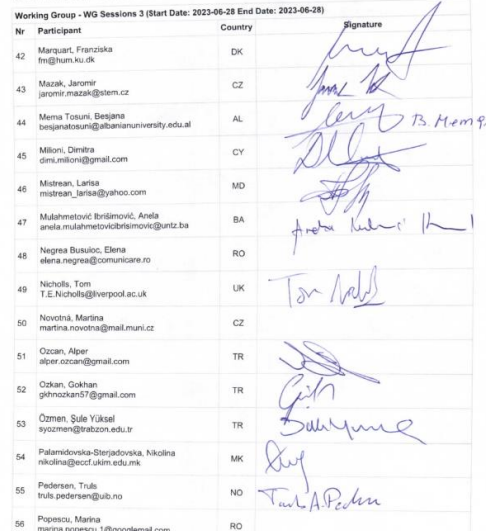 Working Group - WG Sessions 3 (Start Date: 2023-06-28 End Date: 2023-06-28)
Nr Participant Country Signature
42 Marquart, Franziska DK
fm@hum.ku.dk
43 Mazak, Jaromir CZ
jaromir.mazak@stem.cz
44 Mema Tosuni, Besjana AL
besjanatosuni@albanianuniversity.edu.al
B. Mema
45 Milioni, Dimitra CY
dimi.milioni@gmail.com
46 Mistrean, Larisa MD
mistrean_larisa@yahoo.com
47 Mulahmetović Ibrišimović, Anela BA
anela.mulahmetovicibrisimovic@untz.ba
48 Negrea Busuioc, Elena RO
elena.negrea@comunicare.ro
49 Nicholls, Tom UK Tom
T.E.Nicholls@liverpool.ac.uk
50 Novotná, Martina CZ
martina.novotna@mail.muni.cz
51 Ozcan, Alper TR
alper.ozcan@gmail.com
52 Ozkan, Gokhan TR
gkhnozkan57@gmail.com
53 Özmen, Şule Yüksel TR
syozmen@trabzon.edu.tr
54 Palamidovska-Sterjadovska, Nikolina MK
nikolina@eccf.ukim.edu.mk
55 Pedersen, Truls NO
truls.pedersen@uib.no
56 Popescu, Marina RO
marina.popescu.1@googlemail.com